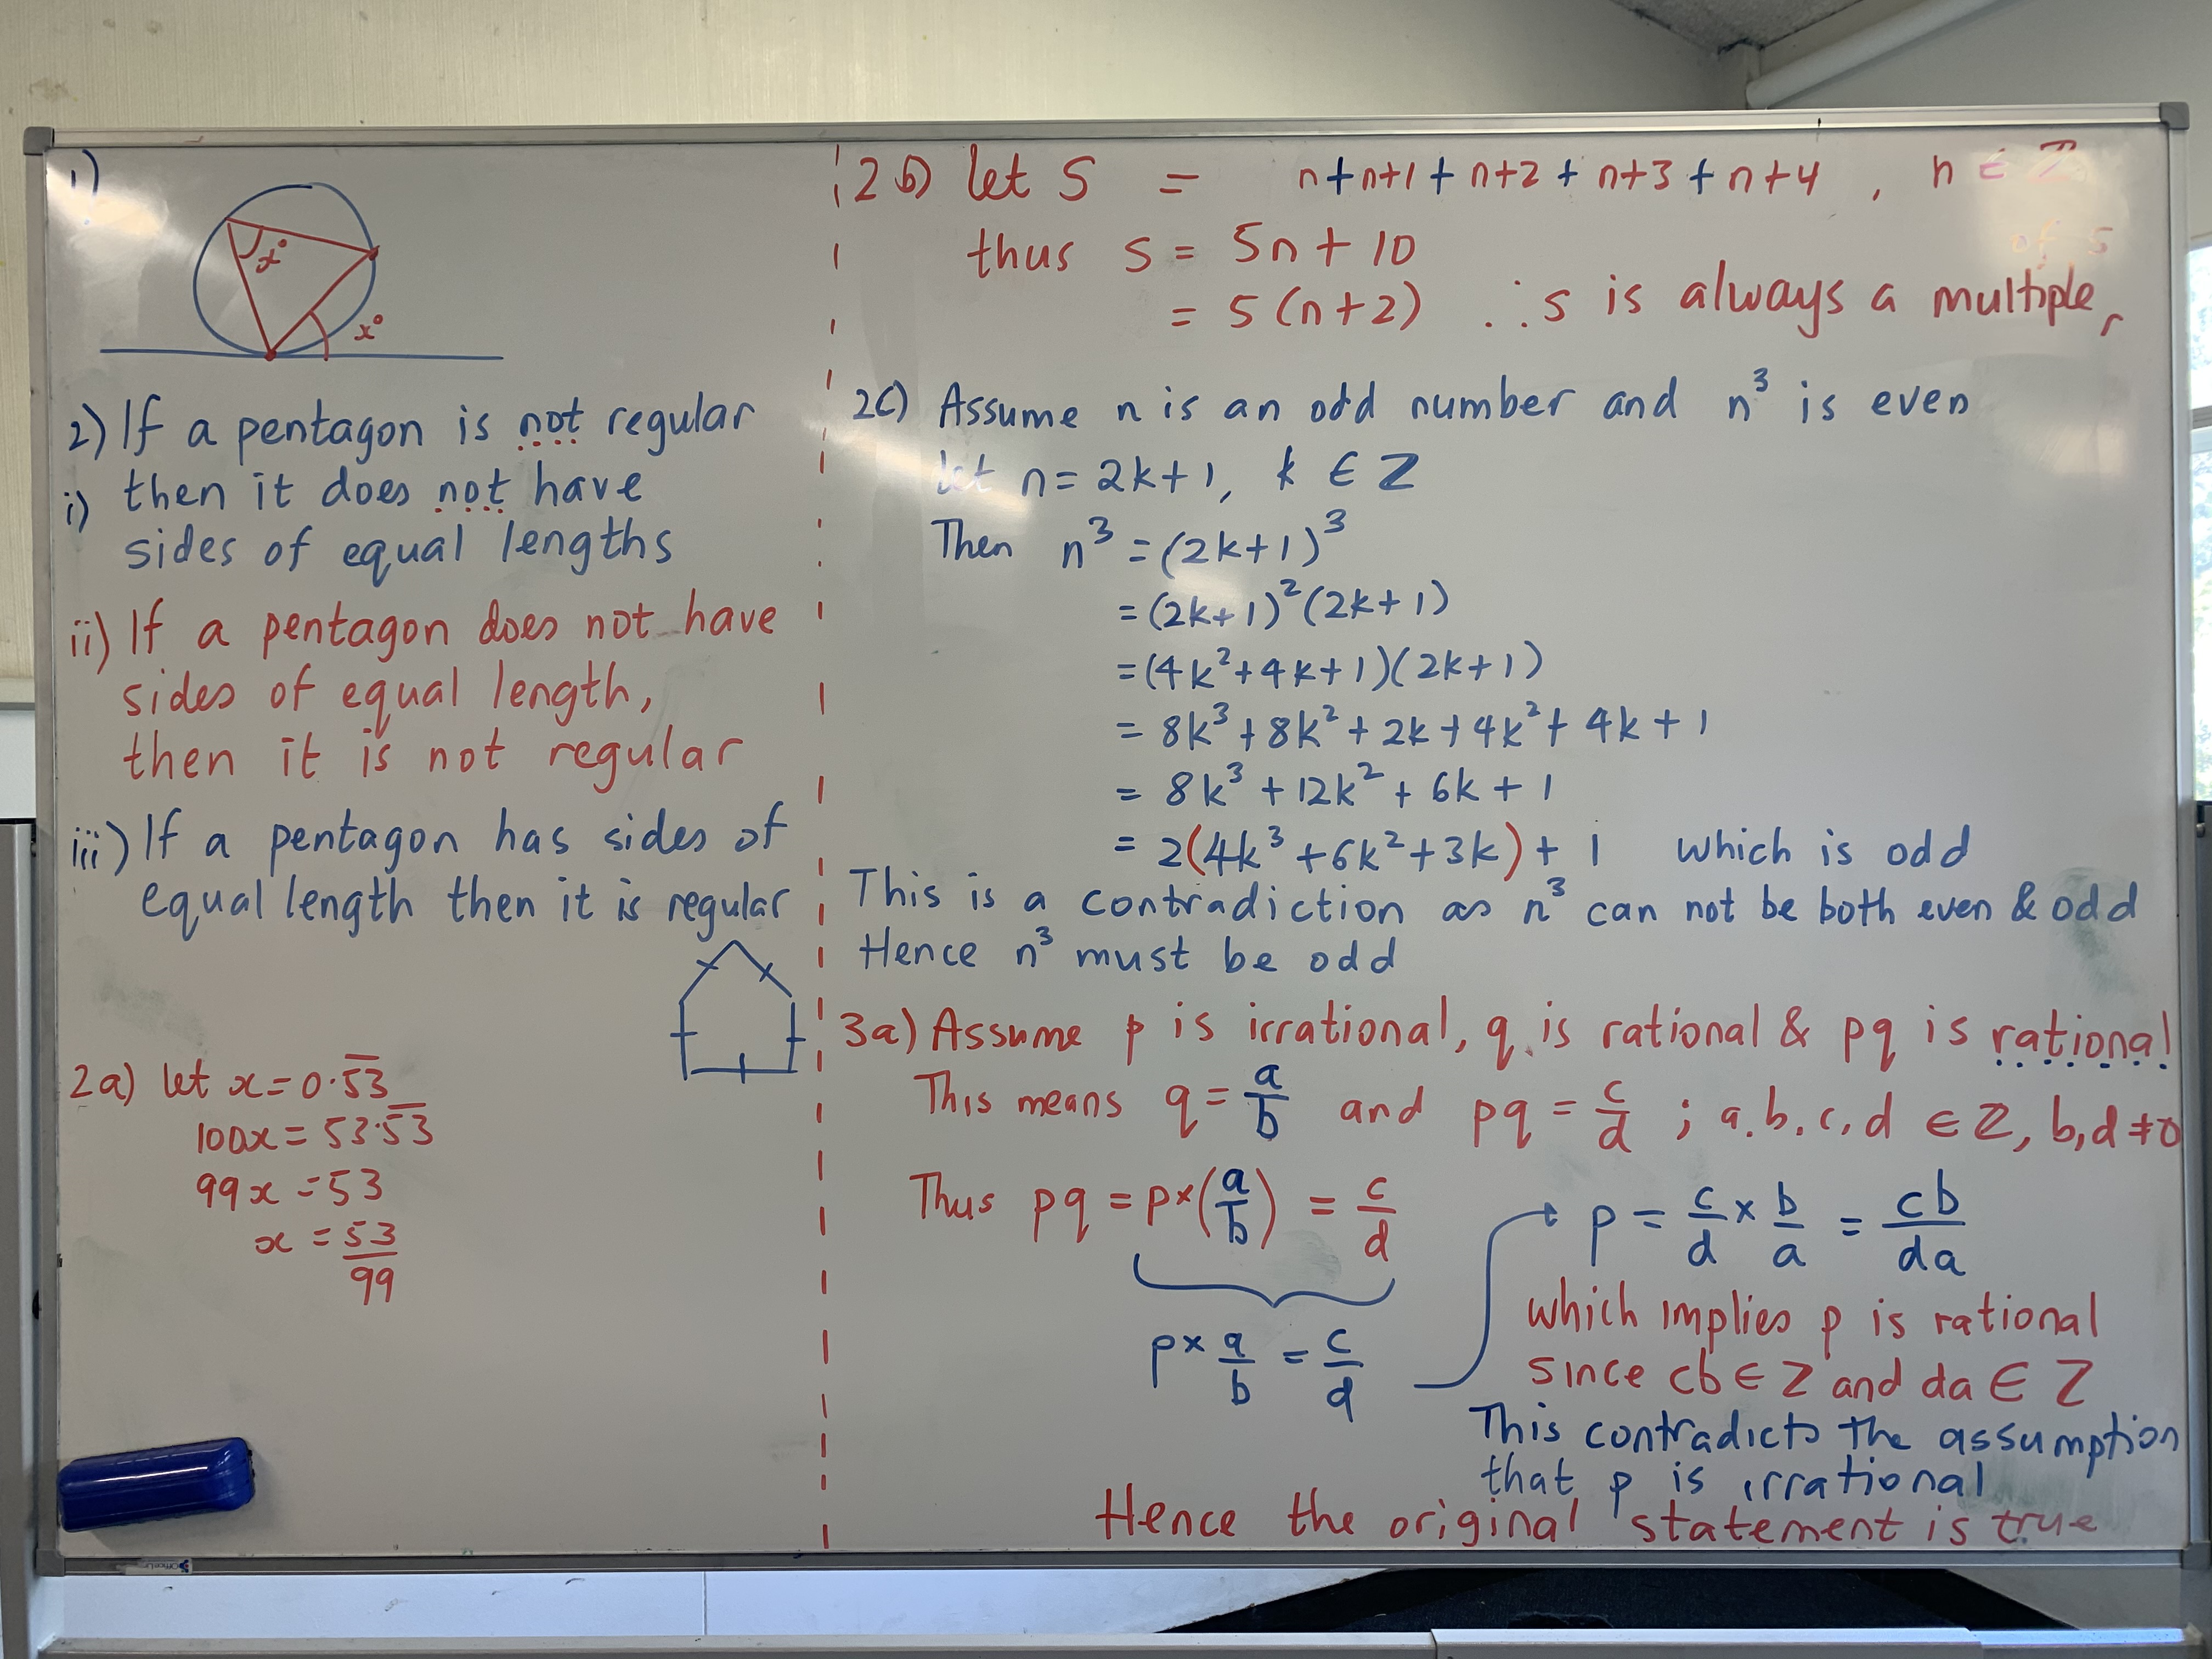 1)
x°
x°
2) If a pentagon is not regular
i) then it does not have
sides of equal lengths
ii) If a pentagon does not have
sides of equal length,
then it is not regular
iii) If a pentagon has sides of
equal length then it is regular
2a) let x = 0.5̅3̅
100x = 53.5̅3̅
99x = 53
x = 53/99
2b) let S = n+n+1+n+2+n+3+n+4, n ∈ Z
thus S = 5n + 10
= 5(n+2) ∴ s is always a multiple,
of 5
2c) Assume n is an odd number and n³ is even
let n = 2k+1, k ∈ Z
Then n³ = (2k+1)³
= (2k+1)²(2k+1)
= (4k²+4k+1)(2k+1)
= 8k³+8k²+2k+4k²+4k+1
= 8k³+12k²+6k+1
= 2(4k³+6k²+3k)+1 which is odd
This is a contradiction as n³ can not be both even & odd
Hence n³ must be odd
3a) Assume p is irrational, q is rational & pq is rational
This means q = a/b and pq = c/d ; a.b.c,d ∈ Z, b,d ≠ 0
Thus pq = p×(a/b) = c/d
p× a/b = c/d
p = c/d × b/a = cb/da
which implies p is rational
since cb ∈ Z and da ∈ Z
This contradicts the assumption
that p is irrational
Hence the original statement is true